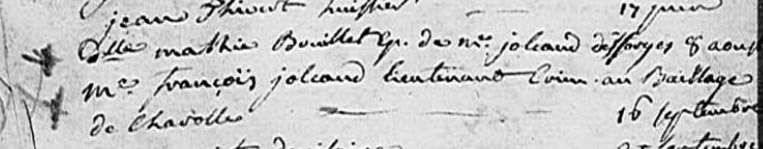 jean Thivent huissier 17 juin
Dlle mathie Bouillet Ep. de mr. joleaud desforges 8 aoust
me. françois joleaud lieutenant Crim. au Bailliage
de Charolles 16 septembre
septembre